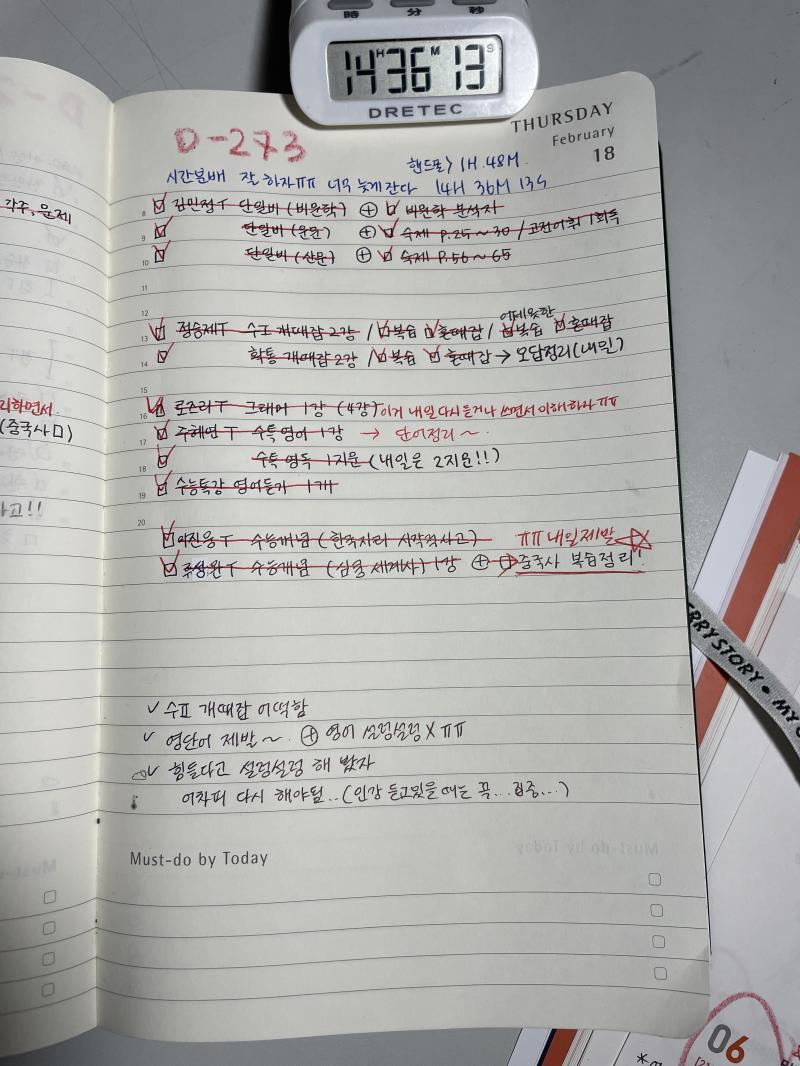 時 分 秒
14H 36M 13S
DRETEC
THURSDAY
February
18
D-273
핸드폰> 1H 48M
시간분배 잘 하자ㅠㅠ 너무 늦게 잔다 14H 36M 13S
8 김민정T 단일비(비문학) ⊕ 비문학 분석지
9 단일비(운문) ⊕ 숙제 P.25~30 / 고전어휘 1회독
10 단일비(산문) ⊕ 숙제 P.56~65
11
12
어제못한
13 정승제T 수I 개때잡 2강 / 복습 혼때잡 / 복습 혼때잡
14 확통 개때잡 2강 / 복습 혼때잡 → 오답정리(내일)
15
16 로즈리T 그래머 1강 (4강) 이거 내일 다시 듣거나 쓰면서 이해하자 ㅠㅠ
17 주혜연T 수특영어 1강 → 단어정리~
18 수특 영독 1지문 (내일은 2지문!!)
19 수능특강 영어듣기 1개
20
이진웅T 수능개념 (한국지리 시작적사고) ㅠㅠ 내일제발
수능개념 (심용 세계사) 1강 ⊕ 중국사 복습정리!
✓ 수I 개때잡 어떡함
✓ 영단어 제발~ ⊕ 영어 설렁설렁 X ㅠㅠ
✓ 힘들다고 설렁설렁 해 봤자
어차피 다시 해야됨..(인강 듣고있을때는 꼭...집중...)
Must-do by Today
각주, 운제
리하면서
(중국사□)
하고!!
RRY STORY • MY
06